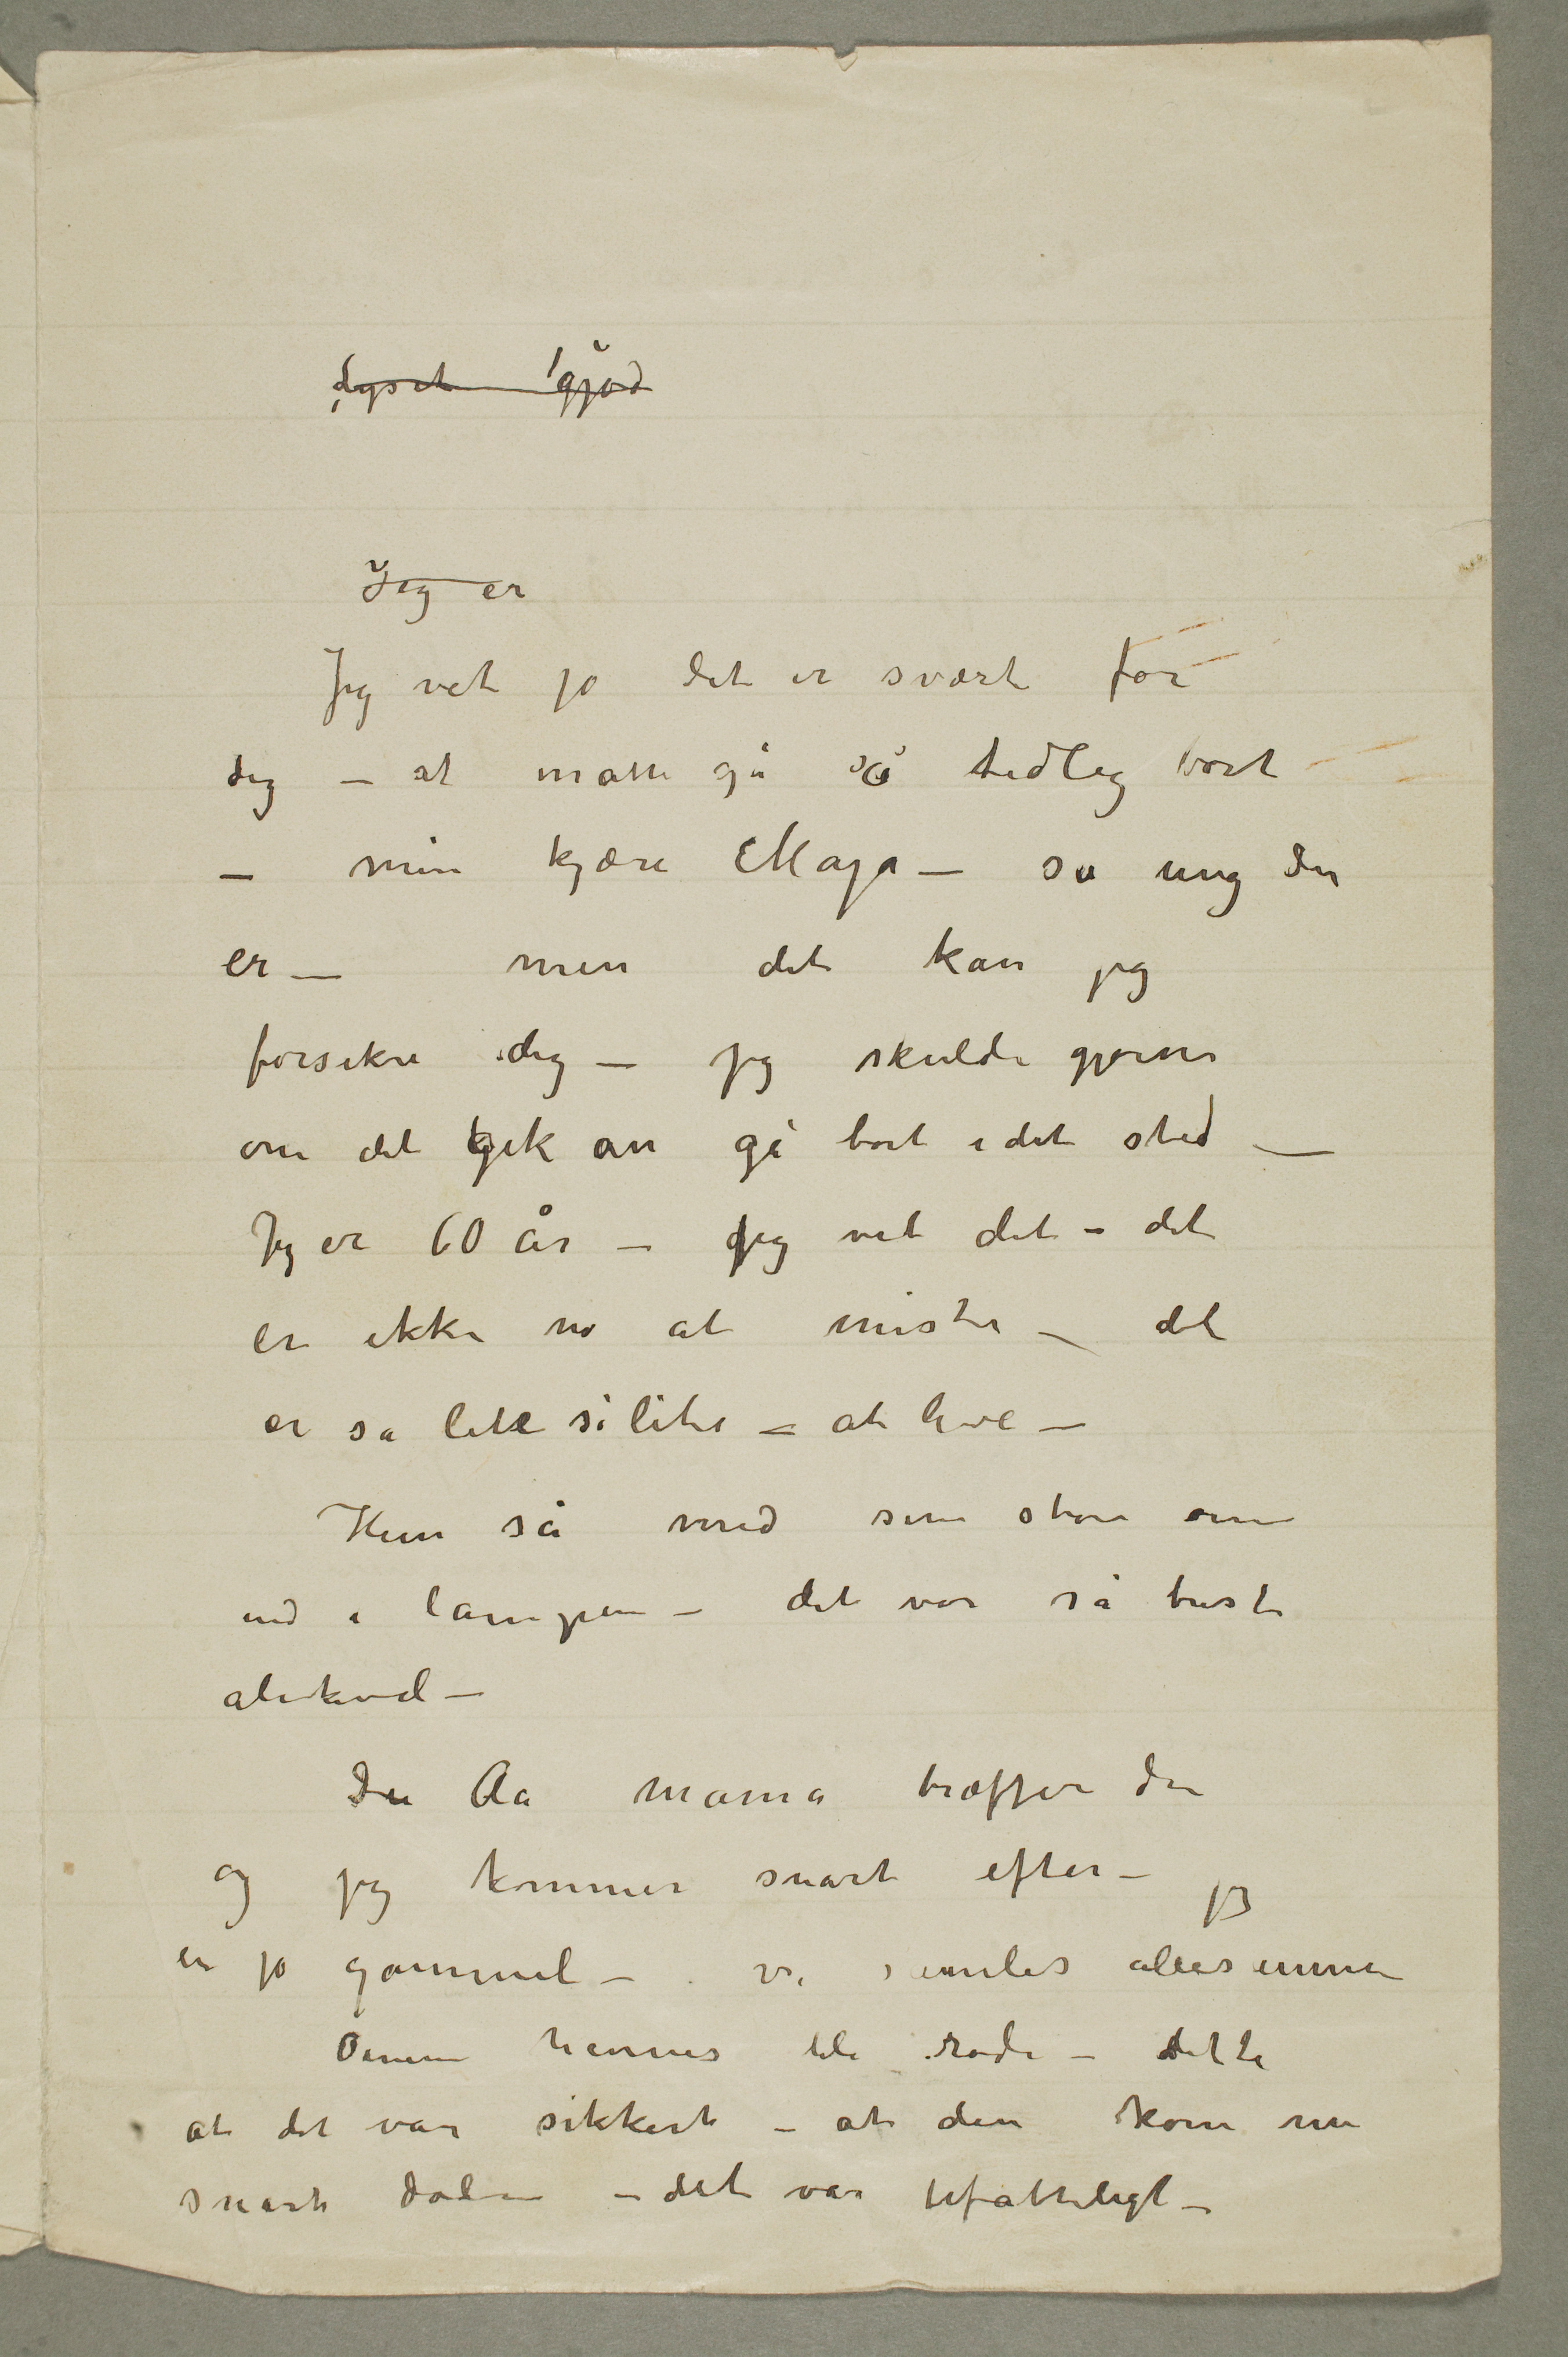 lyset gjød
Jeg er
Jeg vet jo det er svært for
dig – at måtte gå så tidlig bort
– min kjære Maja – så ung du
er – men det kan jeg
forsikre dig – jeg skulde gjerne
om det gik an gå bort i dit sted –
Jeg er 60 år – jeg vet det – det
er ikke no at miste – det
er så lite så lite – at leve –
Hun så med sine store øine
ind i lampen – det var så trist
alikevel –
Du Aa mama træffer du
og jeg kommer snart efter – jeg
er jo gammel – vi samles allesammen
Øinene hennes ble røde – dette
at det var sikkert – at den kom nu
snart døden – det var ufatteligt –